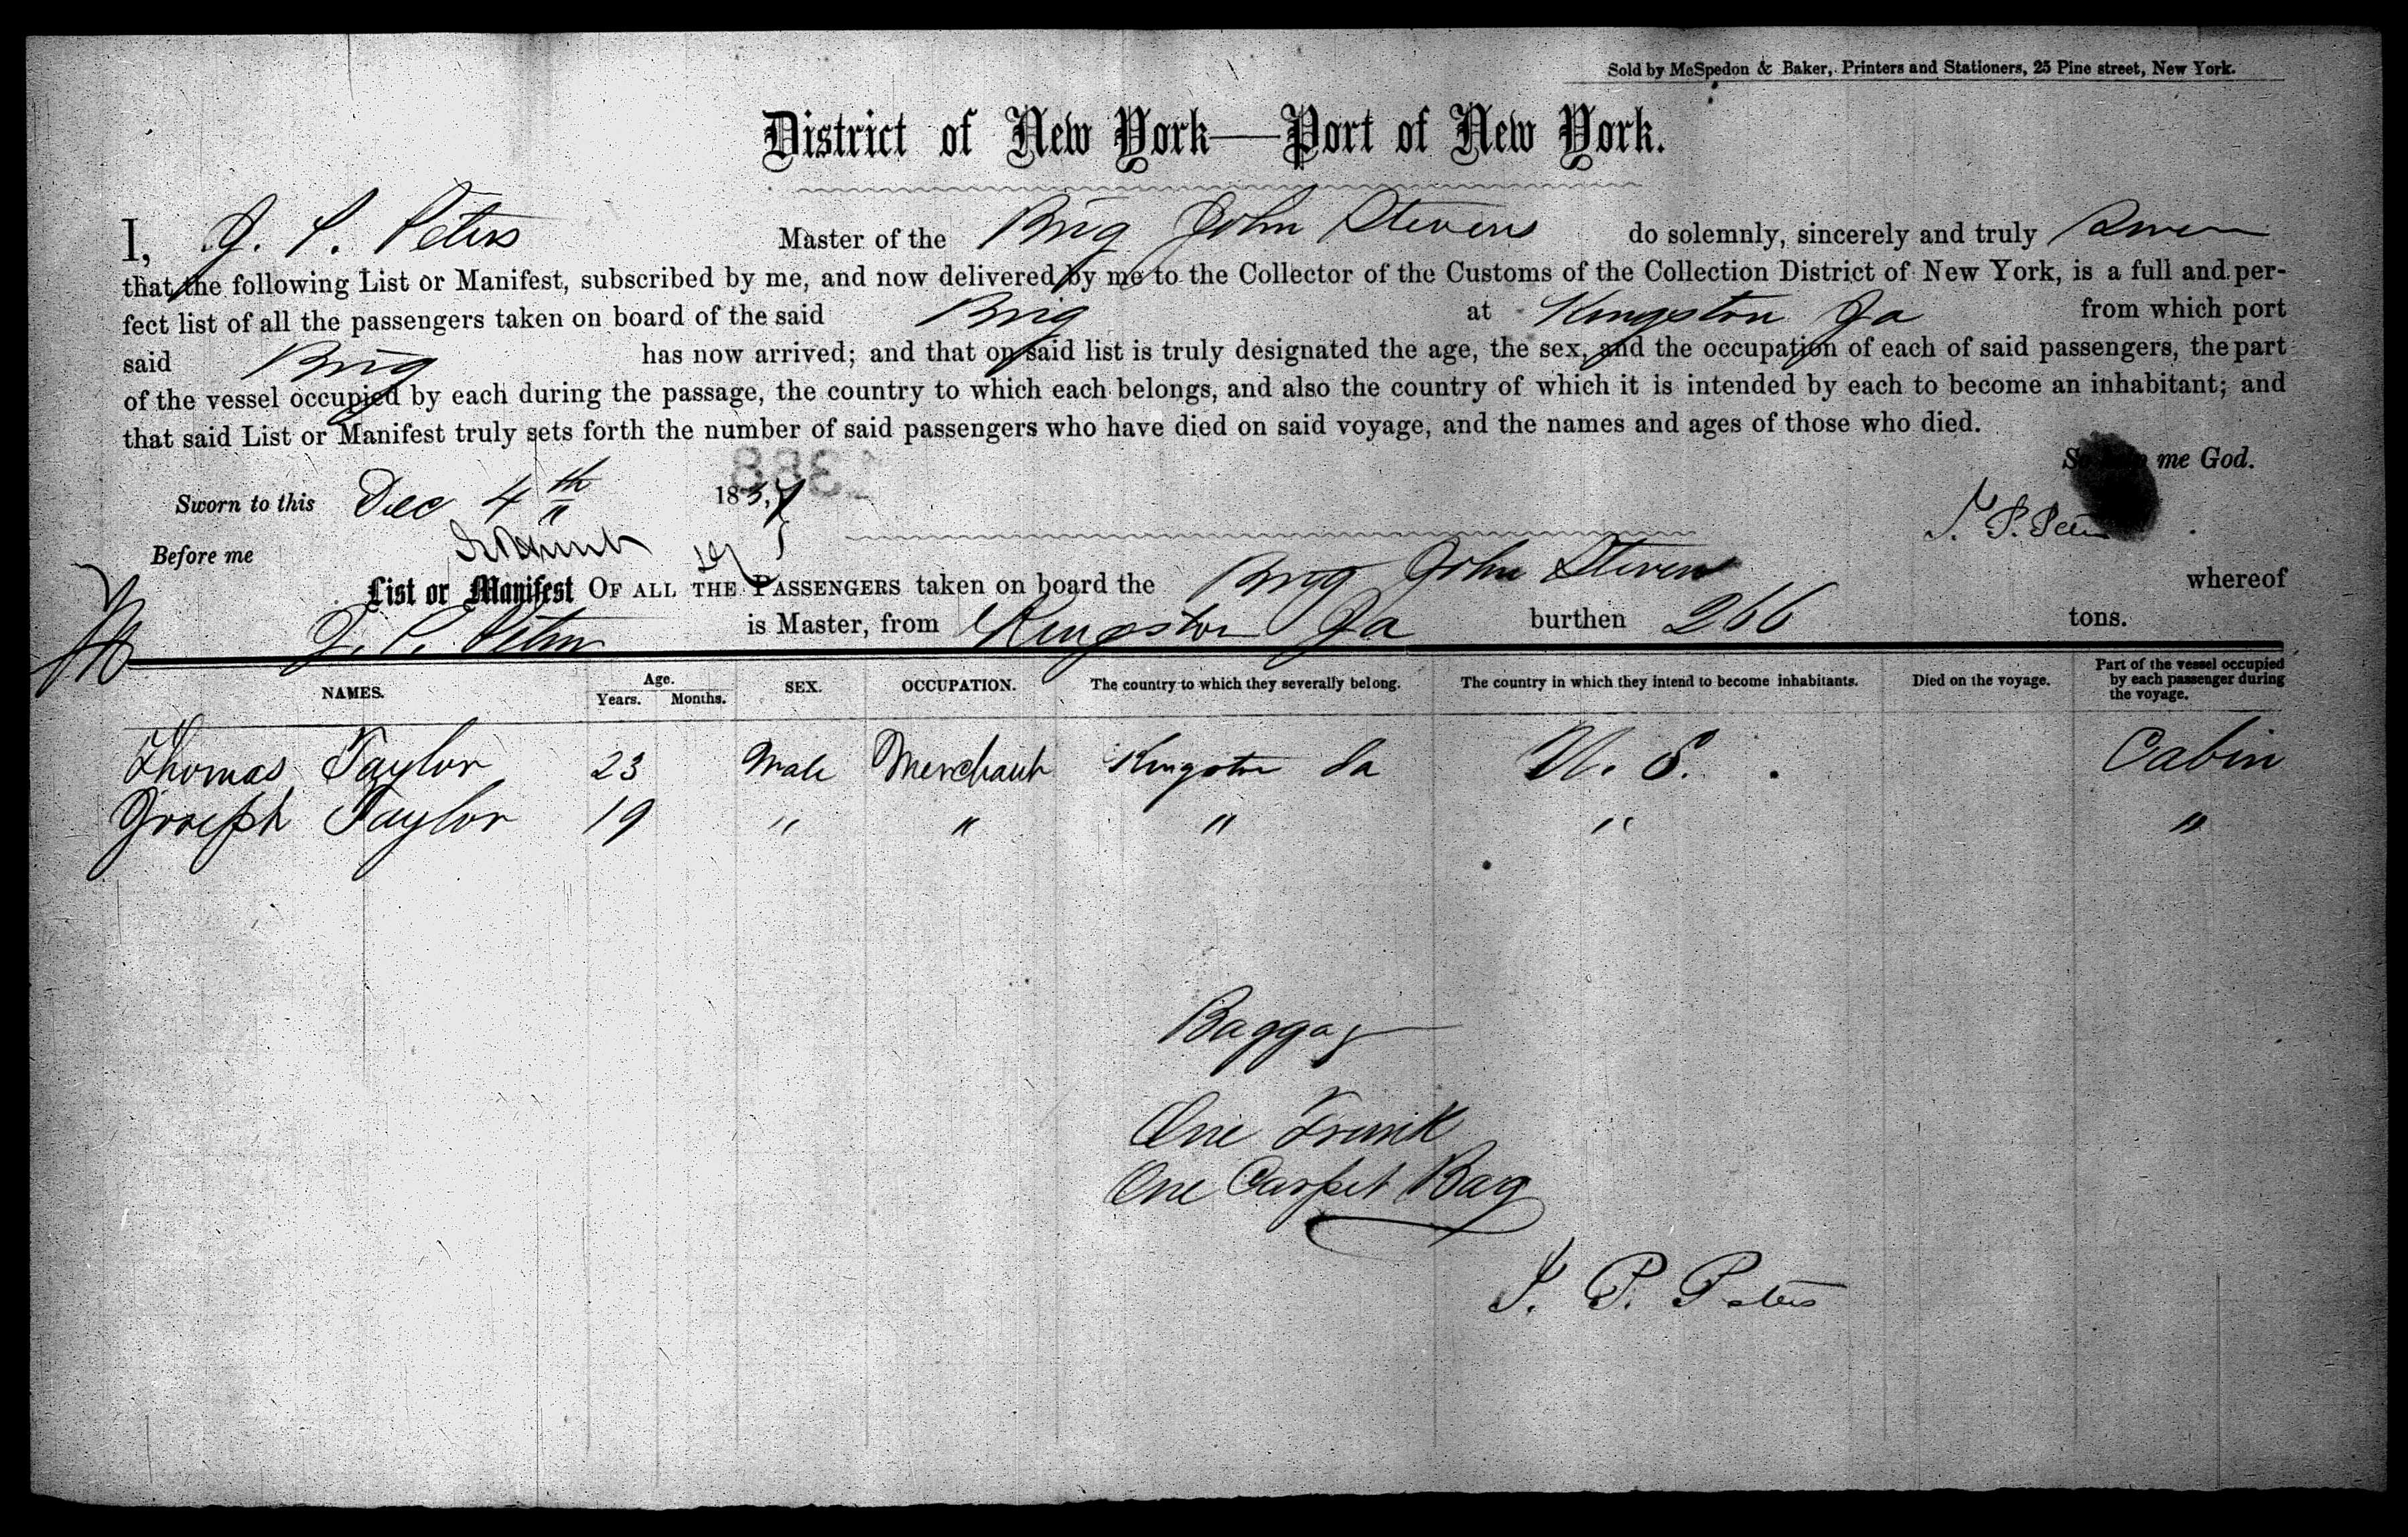 Sold by McSpedon & Baker, Printers and Stationers, 25 Pine street, New York.
District of New York—Port of New York.
I, J. P. Peters Master of the Brig John Stevens do solemnly, sincerely and truly Swear
that the following List or Manifest, subscribed by me, and now delivered by me to the Collector of the Customs of the Collection District of New York, is a full and per-
fect list of all the passengers taken on board of the said Brig at Kingston Ja from which port
said Brig has now arrived; and that on said list is truly designated the age, the sex, and the occupation of each of said passengers, the part
of the vessel occupied by each during the passage, the country to which each belongs, and also the country of which it is intended by each to become an inhabitant; and
that said List or Manifest truly sets forth the number of said passengers who have died on said voyage, and the names and ages of those who died.
me God.
1388
Sworn to this Dec 4th 185
J. P. Peters
Before me
List or Manifest OF ALL THE PASSENGERS taken on board the Brig John Stevens whereof
J. P. Peters is Master, from Kingston Ja burthen 266 tons.
NAMES. Age. Years. Months. SEX. OCCUPATION. The country to which they severally belong. The country in which they intend to become inhabitants. Died on the voyage. Part of the vessel occupied by each passenger during the voyage.
Thomas Taylor 23 Male Merchant Kingston Ja U. S. Cabin
Joseph Taylor 19 " " " " "
Baggage
One Trunk
One Carpet Bag
J. P. Peters